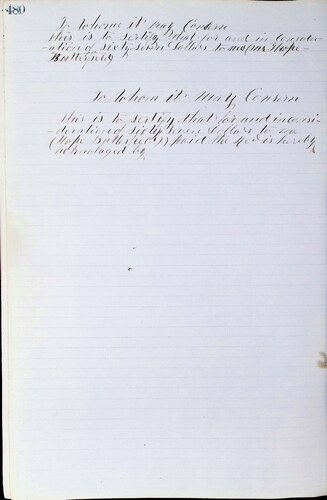 480
To whome it may Consern
this is to sertify that for and in Consider-
-ation of sixty seven Dollars to me Hope
To whom it may Consern
this is to sertify that for and in consi-
-deration of sixty seven Dollars to me
(Hope Butterfield) paid the is hereby
acknolaged by